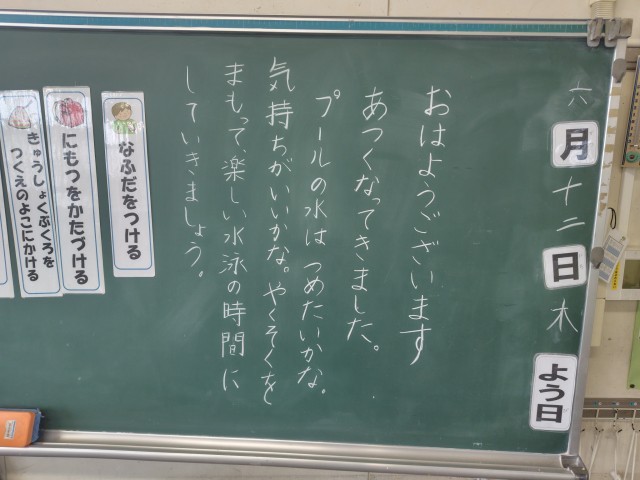 六月十二日木よう日
おはようございます
あつくなってきました。
プールの水はつめたいかな。
気持ちがいいかな。やくそくを
まもって、楽しい水泳の時間に
していきましょう。
なふだをつける
にもつをかたづける
きゅうしょくぶくろを
つくえのよこにかける